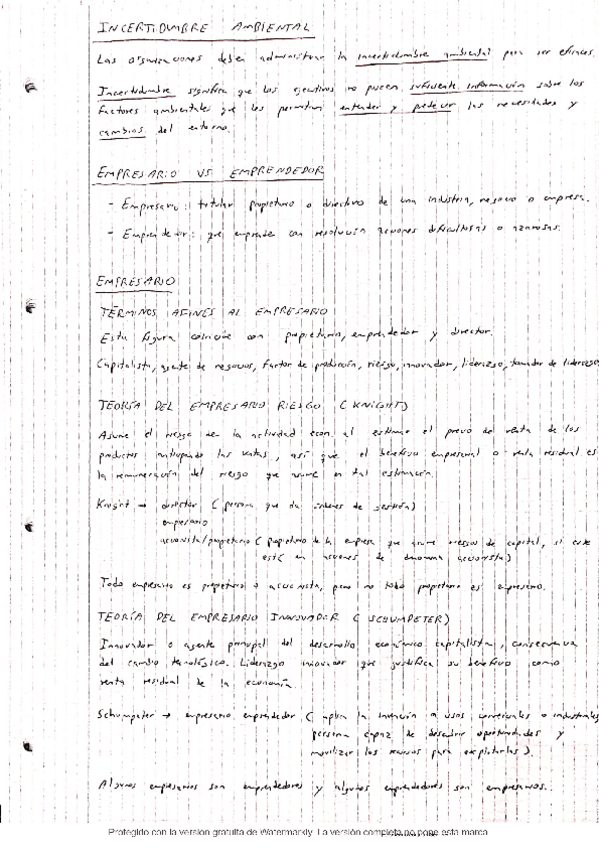 INCERTIDUMBRE AMBIENTAL
Las organizaciones deben administrar la incertidumbre ambiental para ser eficaces.
Incertidumbre significa que los ejecutivos no poseen suficiente información sobre los
factores ambientales que les permitan entender y predecir las necesidades y
cambios del entorno.
EMPRESARIO VS EMPRENDEDOR
- Empresario: titular propietario o directivo de una industria, negocio o empresa.
- Emprendedor: que emprende con resolución acciones dificultosas o azarosas.
EMPRESARIO
TÉRMINOS AFINES AL EMPRESARIO
Esta figura coincide con propietario, emprendedor y director.
Capitalista, agente de negocios, factor de producción, riesgo, innovador, liderazgo, tomador de liderazgo
TEORÍA DEL EMPRESARIO RIESGO (KNIGHT)
Asume el riesgo de la actividad econ. al estimar el precio de venta de los
productos anticipando las ventas, así que el beneficio empresarial o renta residual es
la remuneración del riesgo que asume en tal estimación.
Knight → director (persona que da órdenes de gestión)
empresario
accionista/propietario (propietario de la empresa que asume riesgos de capital, si este
está en acciones se denomina accionista)
Todo empresario es propietario o accionista, pero no todo propietario es empresario.
TEORÍA DEL EMPRESARIO INNOVADOR (SCHUMPETER)
Innovador o agente principal del desarrollo económico capitalista, consecuencia
del cambio tecnológico. Liderazgo innovador que justifica su beneficio como
renta residual de la economía.
Schumpeter → empresario emprendedor (aplica la invención a usos comerciales o industriales
persona capaz de descubrir oportunidades y
movilizar los recursos para explotarlas).
Algunos empresarios son emprendedores y algunos emprendedores son empresarios.
Protegido con la versión gratuita de Watermarkly. La versión completa no pone esta marca.